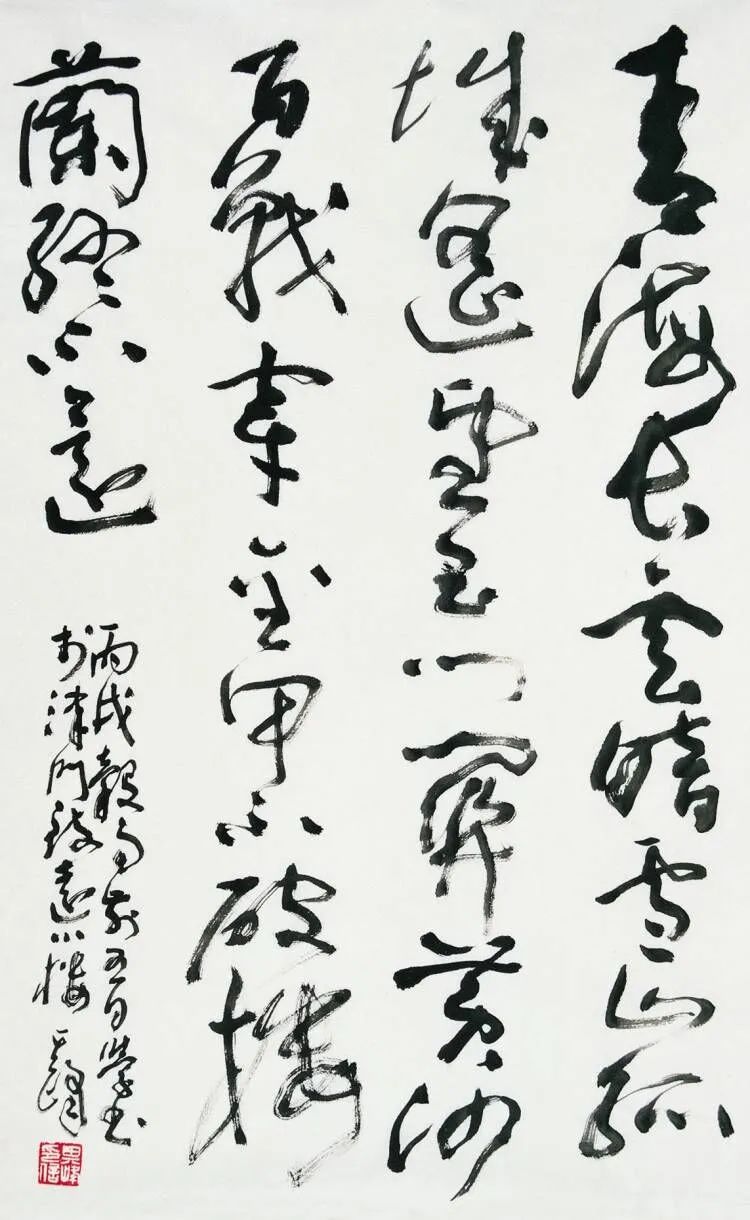 青海長云暗雪山孤
城遥望玉門關黄沙
百戰穿金甲不破樓
蘭終不還
丙戌穀雨前五日學書
於津門致遠小樓